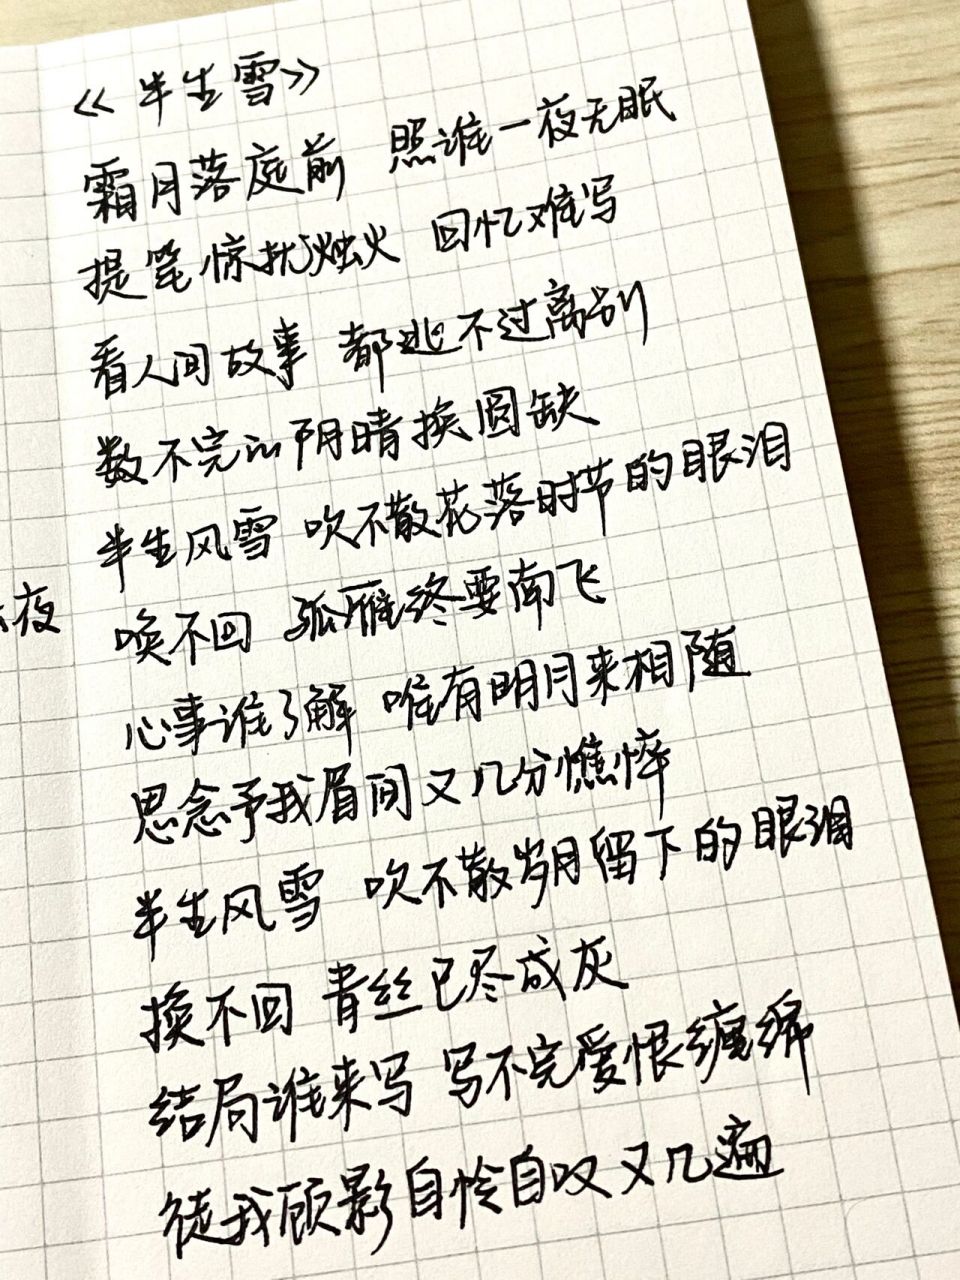 《半生雪》
霜月落庭前 照谁一夜无眠
提笔惊扰烛火 回忆难写
看人间故事 都逃不过离别
数不完的阴晴换圆缺
半生风雪 吹不散花落时节的眼泪
唤不回 孤雁终要南飞
心事谁了解 唯有明月来相随
思念予我眉间又几分憔悴
半生风雪 吹不散岁月留下的眼泪
换不回 青丝已尽成灰
结局谁来写 写不完爱恨缠绵
徒我顾影自怜自叹又几遍
夜